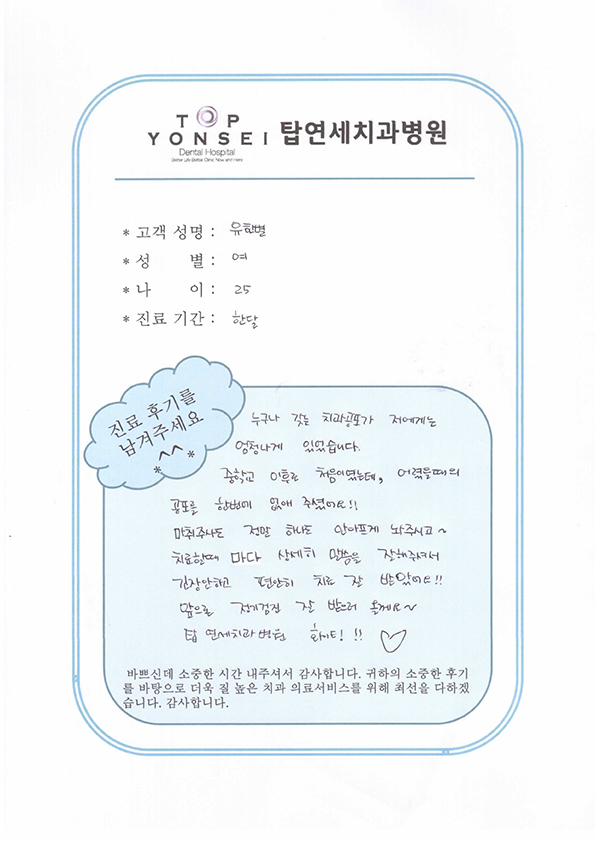 TOP
YONSEI 탑연세치과병원
Dental Hospital
Better Life Better Clinic Now and Here
* 고객 성명 : 유한별
* 성 별 : 여
* 나 이 : 25
* 진료 기간 : 한달
진료 후기를
남겨주세요
*^^*
누구나 갖는 치과공포가 저에게는
엄청나게 있었습니다.
중학교 이후로 처음이였는데, 어렸을때의
공포를 한번에 없애 주셨어요!!
마취주사도 정말 하나도 안아프게 놔주시고~
치료할때 마다 상세히 말씀을 잘해주셔서
긴장안하고 편안히 치료 잘 받았어요!!
앞으로 정기검진 잘 받으러 올께요~
탑 연세치과병원 화이팅! !!
바쁘신데 소중한 시간 내주셔서 감사합니다. 귀하의 소중한 후기
를 바탕으로 더욱 질 높은 치과 의료서비스를 위해 최선을 다하겠
습니다. 감사합니다.